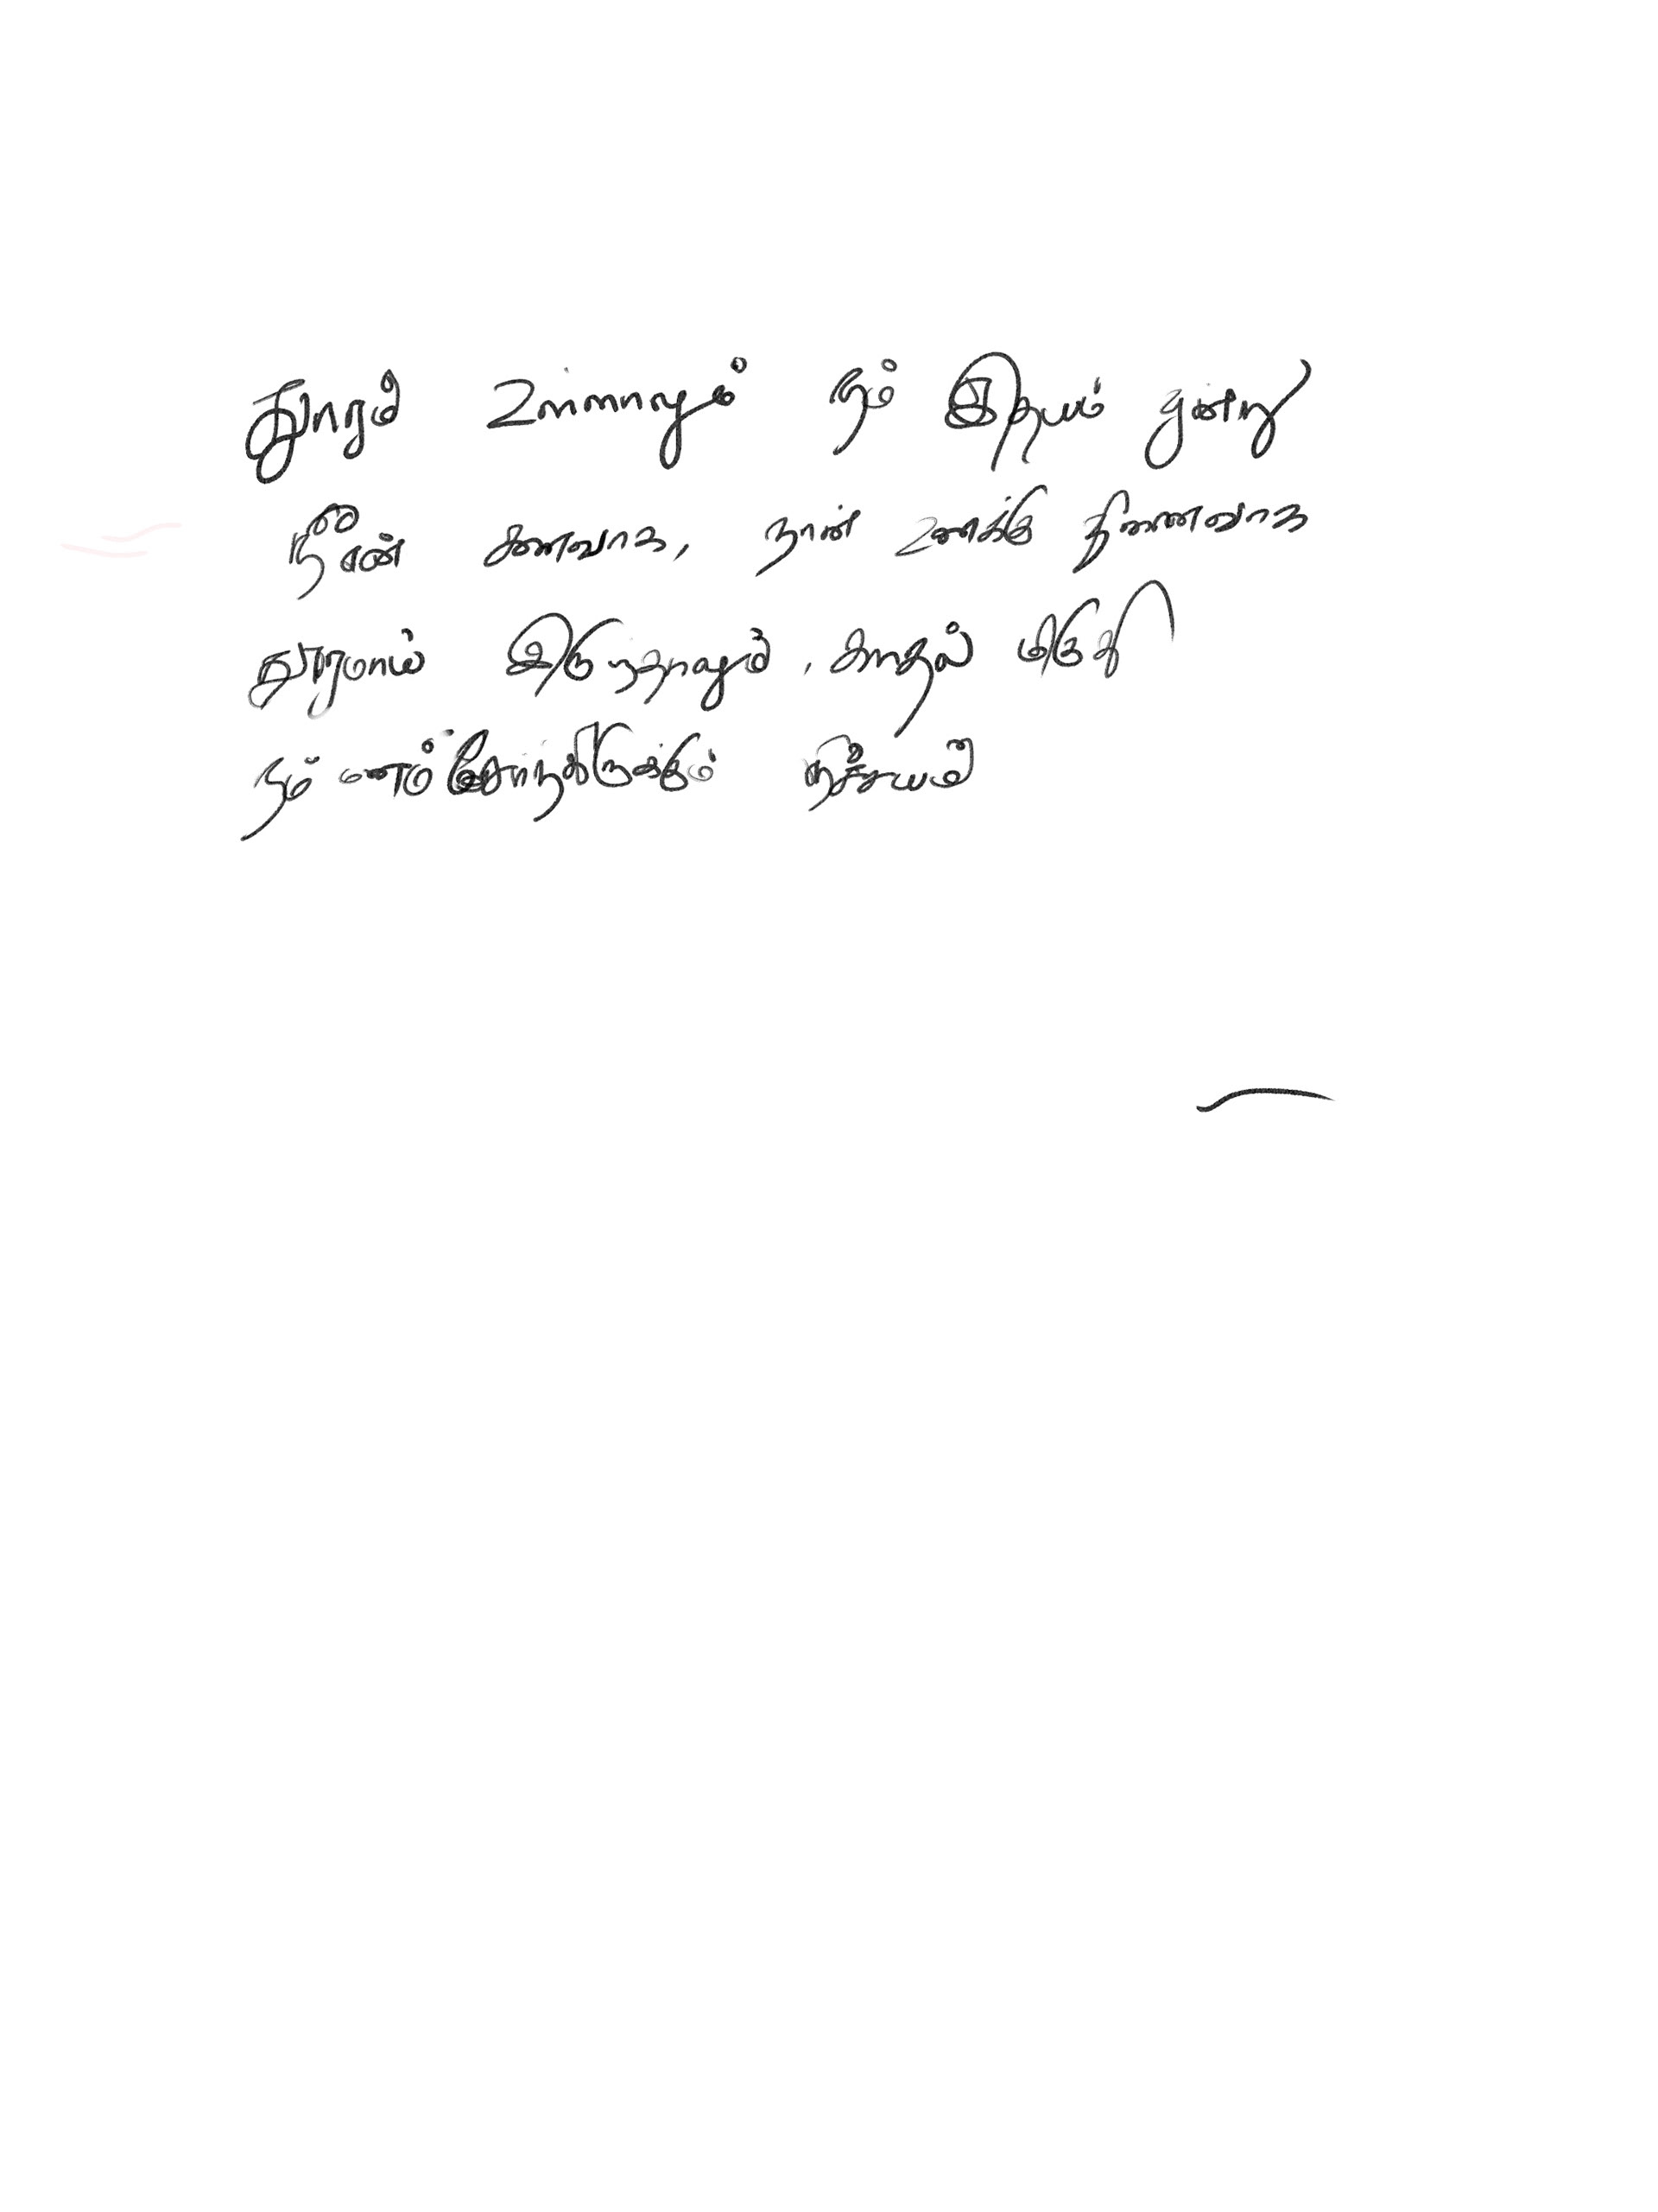 தூரம் உள்ளாலும் நம் இதயம் ஒன்று
நீ என் கனவாக, நான் உனக்கு நினைவாக
தூரமாய் இருந்தாலும், காதல் மிகுதி
நம் மனம் சேர்ந்திருக்கும் நிச்சயம்